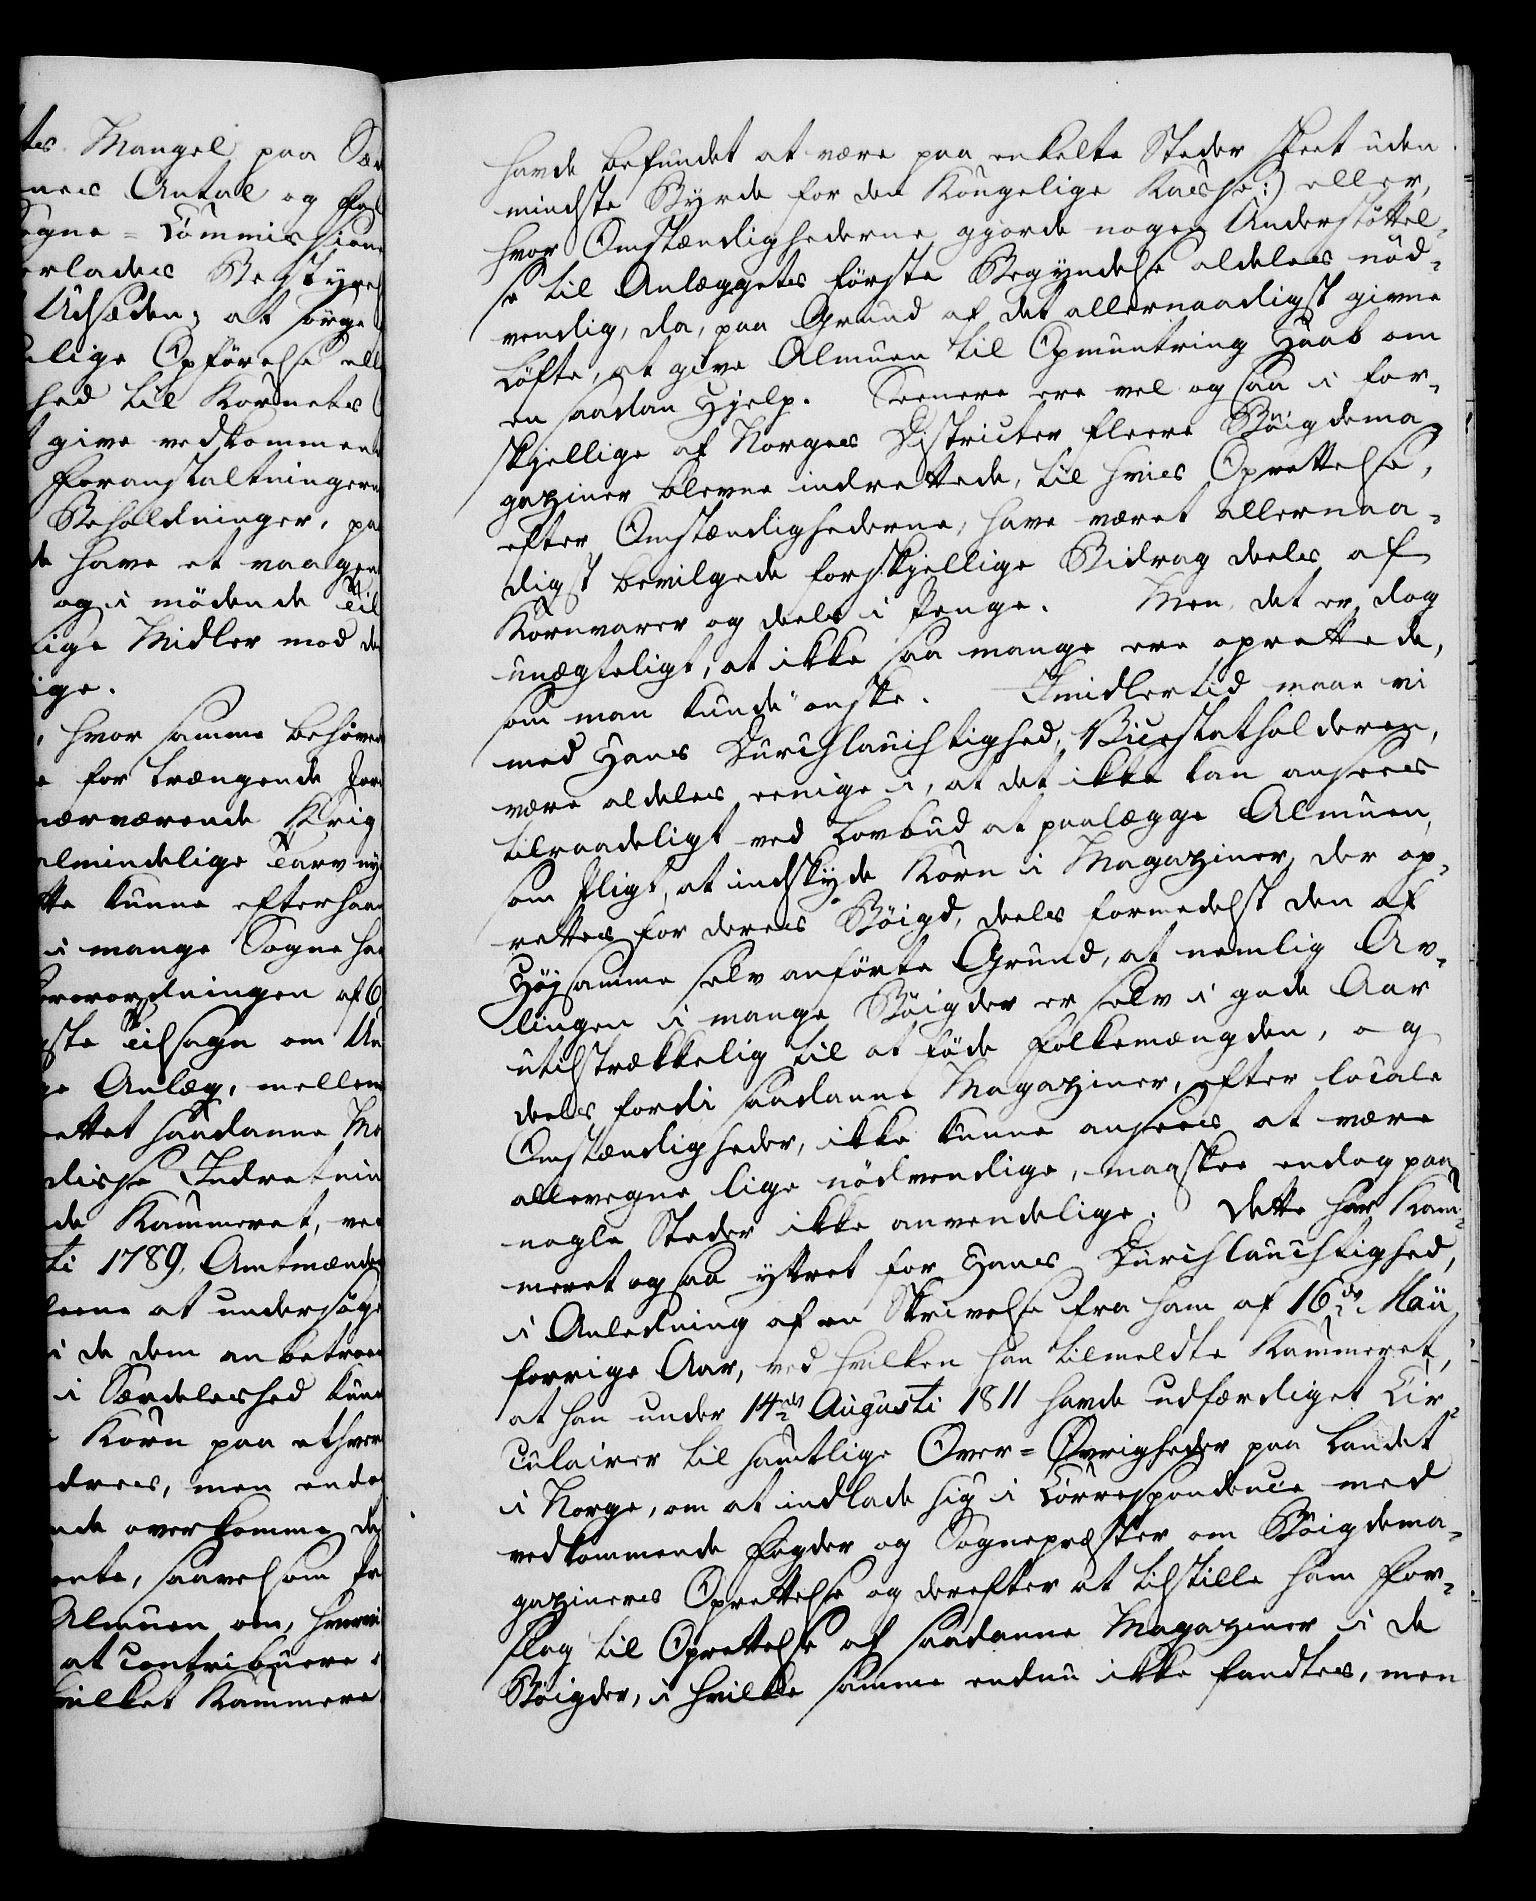 tes Mangel paa Sæ
nes Antal og
ogne = Commissione
erlades Bestyre
Udsæden; at sørge
elige Opførelse ell
hed til Kornets
give vedkommen
Foranstaltninger
Beholdninger, pa
de have et vaagen
og i mødende Til
lige Midler mod d
ige.
hvor samme behøve
e for trængende
nærværende Krig
almindelige Tarv
tte kunne efterhaan
i mange Sogne ha
Forordningen af 6
gste Tilsagn om Un
ge Anlæg, mellem
rettet saadanne Ma
disse Indretnin
de Kammeret, ved
ti 1789, Amtmænde
lerne at undersøge
i de dem anbetroe
i Særdeleshed kun
Korn paa ethver
dres, men endo
nde overkomme d
ente, saavelsom
Almuen om, hvorvi
at contribuere
hvilket Kammere
havde befundet at være paa enkelte Steder skeet uden
mindste Byrde for den Kongelige Kasse:) eller,
hvor Omstændighederne gjorde nogen Understøttel-
se til Anlæggets første Begyndelse aldeles nød-
vendig, da, paa Grund af det allernaadigst givne
Løfte, at give Almuen til Opmuntring Haab om
en saadan Hjelp. Seenere ere vel ogsaa i for-
skjellige af Norges Districter fleere Bøigdema-
gaziner blevne indrettede, til hvis Oprettelse,
efter Omstændighederne, have været allernaa-
digst bevilgede forskjellige Bidrag deels af
Kornvarer og deels i Penge. Men det er dog
unægteligt, at ikke saa mange ere oprettede,
som man kunde ønske. Imidlertid maae vi
med Hans Durchlauchtighed, Vicestatholderen,
være aldeles eenige i, at det ikke kan ansees
tilraadeligt ved Lovbud at paalægge Almuen,
som Pligt, at indskyde Korn i Magaziner, der op-
rettes for deres Bøigd, deels formedelst den af
Højsamme selv anførte Grund, at nemlig Av-
lingen i mange Bøigder er selv i gode Aar
utilstrækkelig til at føde Folkemængden, og
deels fordi saadanne Magaziner, efter locale
Omstændigheder, ikke kunne ansees at være
allevegne lige nødvendige, maaskee endog paa
nogle Steder ikke anvendelige. Dette har Kam-
meret ogsaa yttret for Hans Durchlauchtighed,
i Anledning af en Skrivelse fra ham af 16de Maii
forrige Aar, ved hvilken han tilmeldte Kammeret,
at han under 14de Augusti 1811 havde udfærdiget Cir-
culairer til samtlige Over-Øvrigheder paa Landet
i Norge, om at indlade sig i Correspondence med
vedkommende Fogder og Sognepræster om Bøigdema-
gaziners Oprettelse og derefter at tilstille ham For-
slag til Oprettelse af saadanne Magaziner i de
Bøigder, i hvilke samme endnu ikke fandtes, men